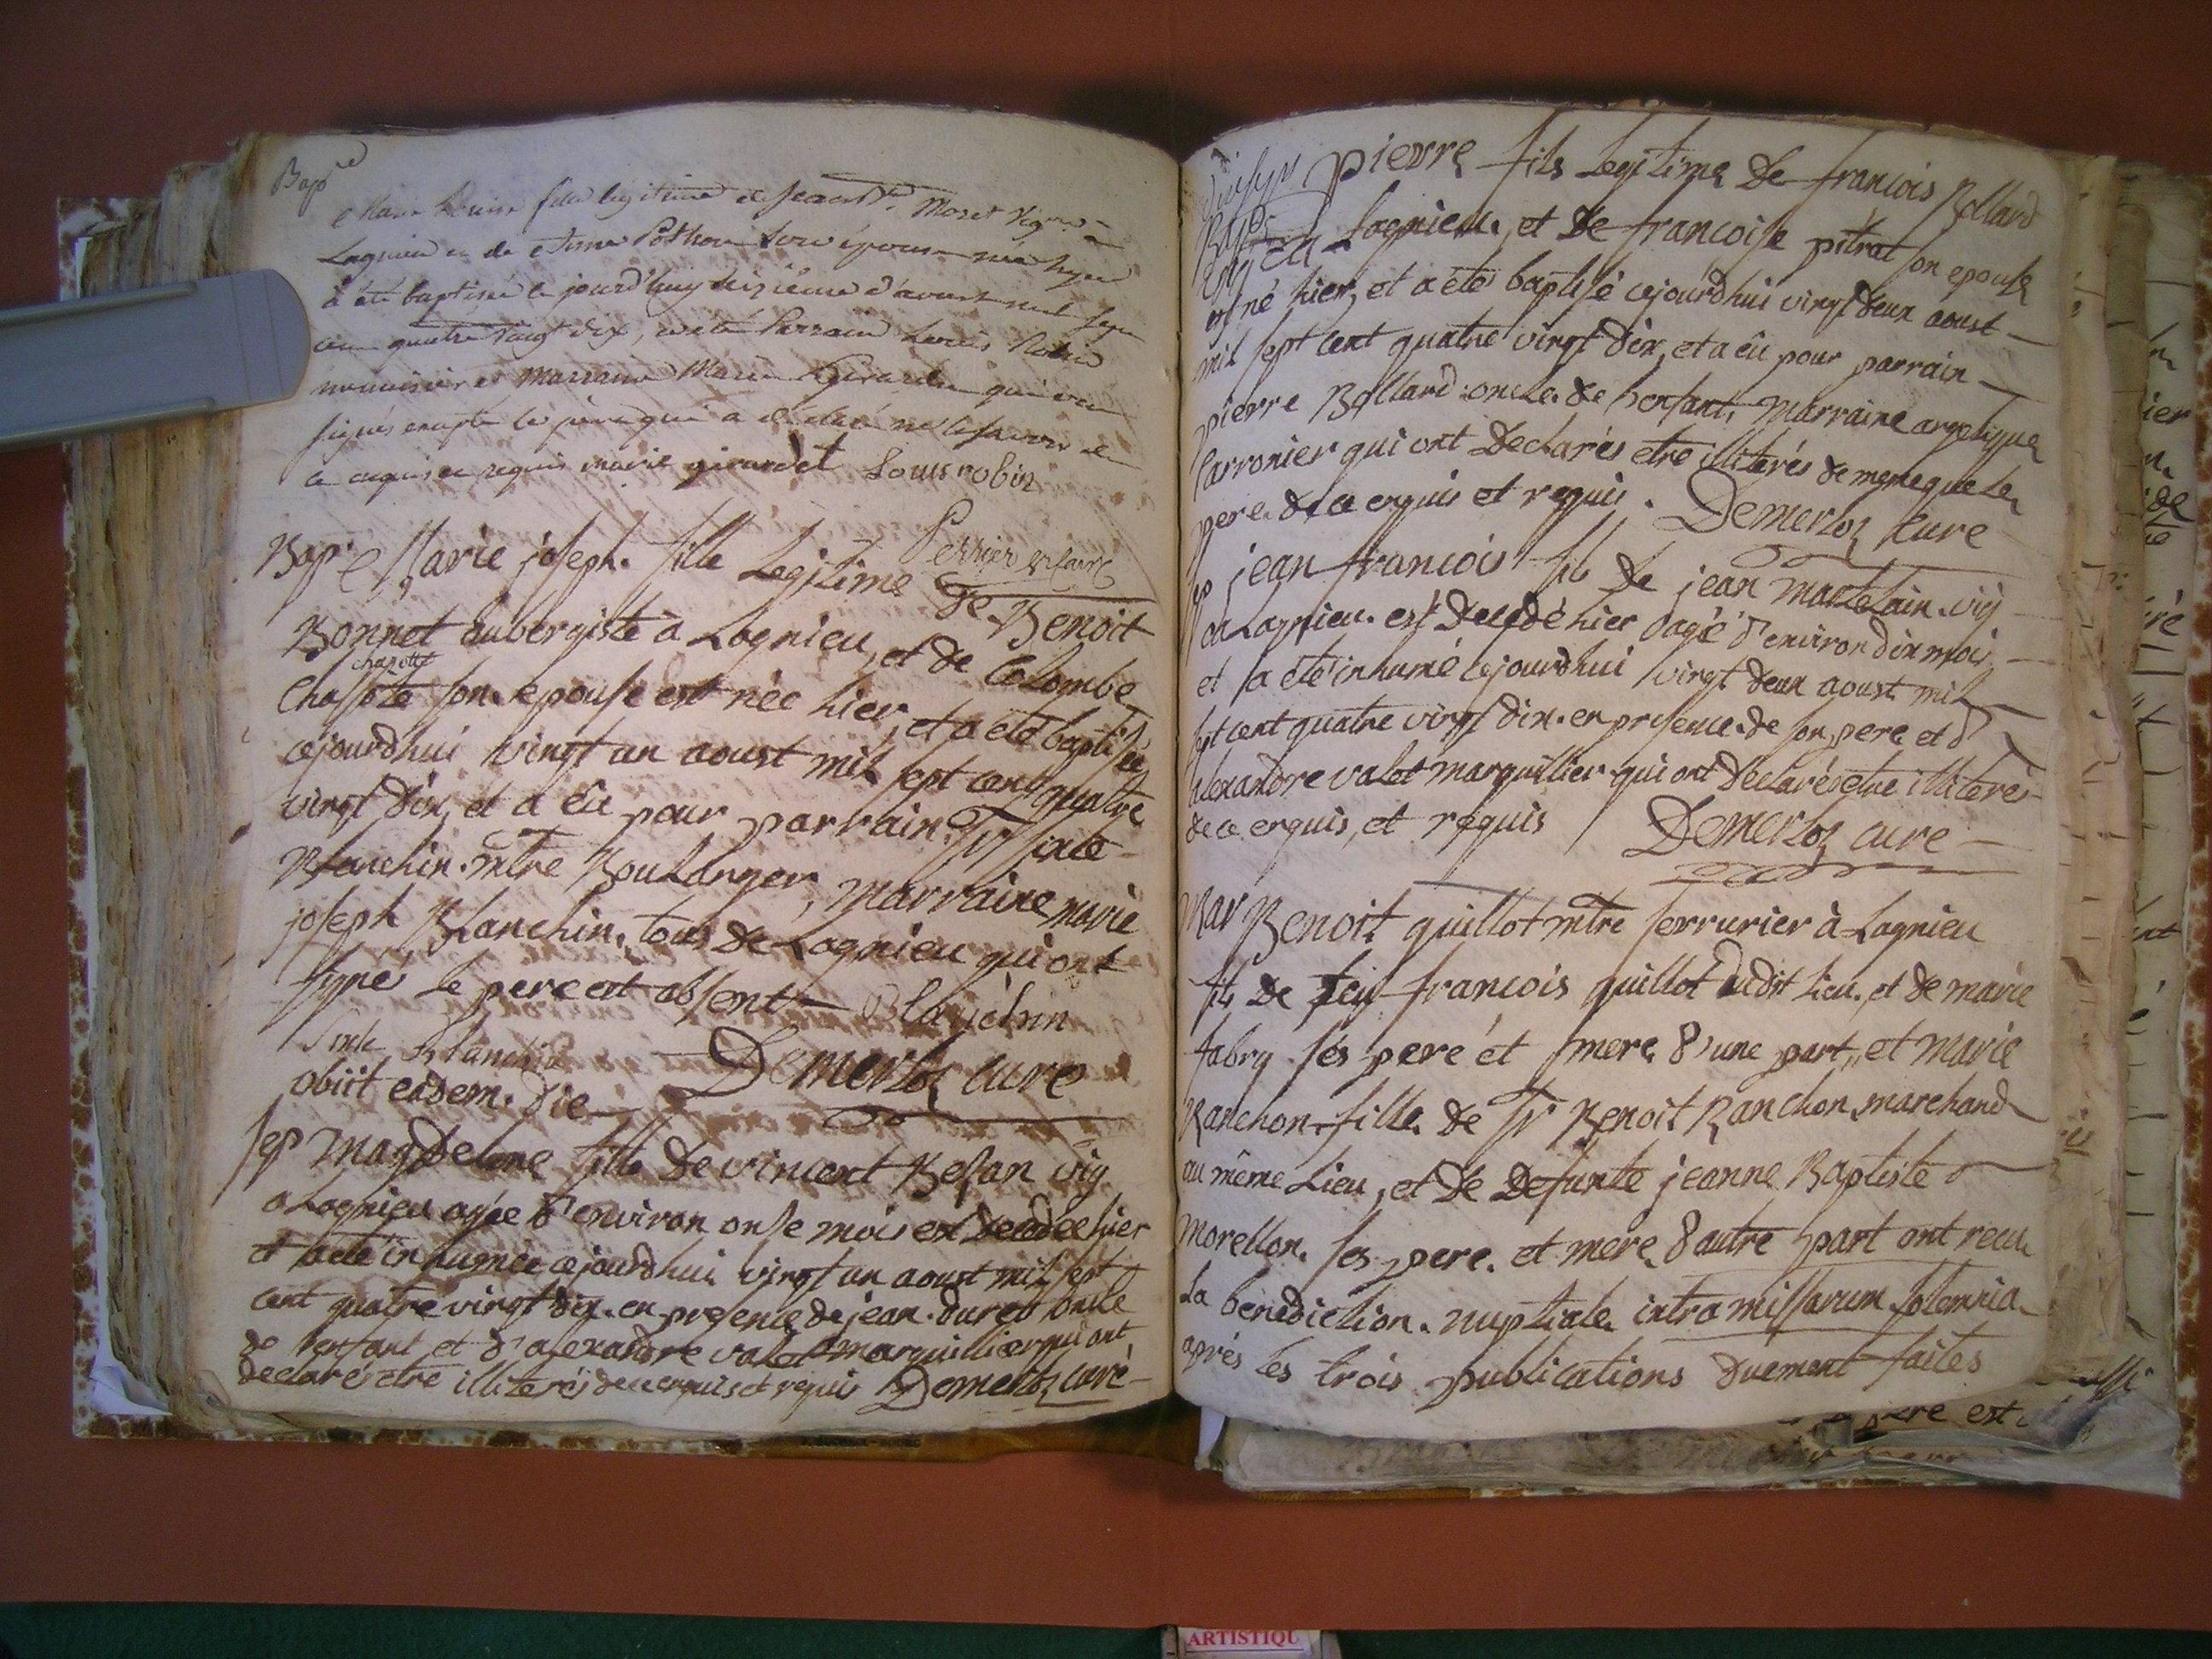 Bap
Marie Louise fille legitime de jean Moret Vigneron
Lagnieu et de Pothon son épouse née hyer
à été baptisée le jourd'huy seizième d'aoust mil sept
cent quatre vingt dix, a été Parrain Louis Robin
menuisier et Marraine Marie Girardet qui ont
signés excepté le père qui a déclaré ne le savoir de
ce enquis et requis marie girardet Louis robin
Perrier vicaire
Bap Marie joseph fille Legitime de Benoit
Bonnet aubergiste à Lagnieu, et de Colombe
chapotte
Chassote son epouse est née hier, et a été baptisée
cejourdhui vingt un aoust mil sept cent quatre
vingt dix, et a eû pour parrain Sr sixte
Blanchin mtre Boulanger, marraine marie
joseph Blanchin, tous de Lagnieu qui ont
signé Le pere est absent Blanchin
Sixte Blanchin
obiit eadem die Demerloz curé
Sep Magdelene fille de vincent Besan vig
a Lagnieu agée d'environ onse mois est decedée hier
et a été inhumée cejourdhui vingt un aoust mil sept
cent quatre vingt dix en presence de jean duret oncle
de l'enfant et d'alexandre valet marguillier qui ont
declarés etre illiterés de ce enquis et requis Demerloz curé
Bap
pierre fils Legitime de francois Bollard
vig a Lagnieu, et de francoise pitrat son epouse
est né hier, et a été baptisé cejourdhui vingt deux aoust
mil sept cent quatre vingt dix, et a eû pour parrain
pierre Bollard oncle de l'enfant, Marraine angelique
Carronier qui ont Declarés etre illiterés de meme que Le
pere de ce enquis et requis. Demerloz Curé
Sep jean francois fils de jean Martelain vig
a Lagnieu est Decedé hier agé d'environ dix mois
et a été inhumé cejourdhui vingt deux aoust mil
sept cent quatre vingt dix en presence de son pere et d'
alexandre valet marguillier qui ont déclarés etre illiterés
de ce enquis, et requis Demerloz curé
Mar Benoit guillot mtre serrurier à Lagnieu
fils de feu francois guillot dudit Lieu, et de marie
fabry ses pere et mere d'une part, et marie
Ranchon fille de Sr Benoit Ranchon marchand
au même Lieu, et de Defunte jeanne Baptiste
morellon ses pere et mere d'autre part ont recu
La benediction nuptiale intra missarum solemnia
aprés Les trois publications duement faites
pere est
ARTISTIQU